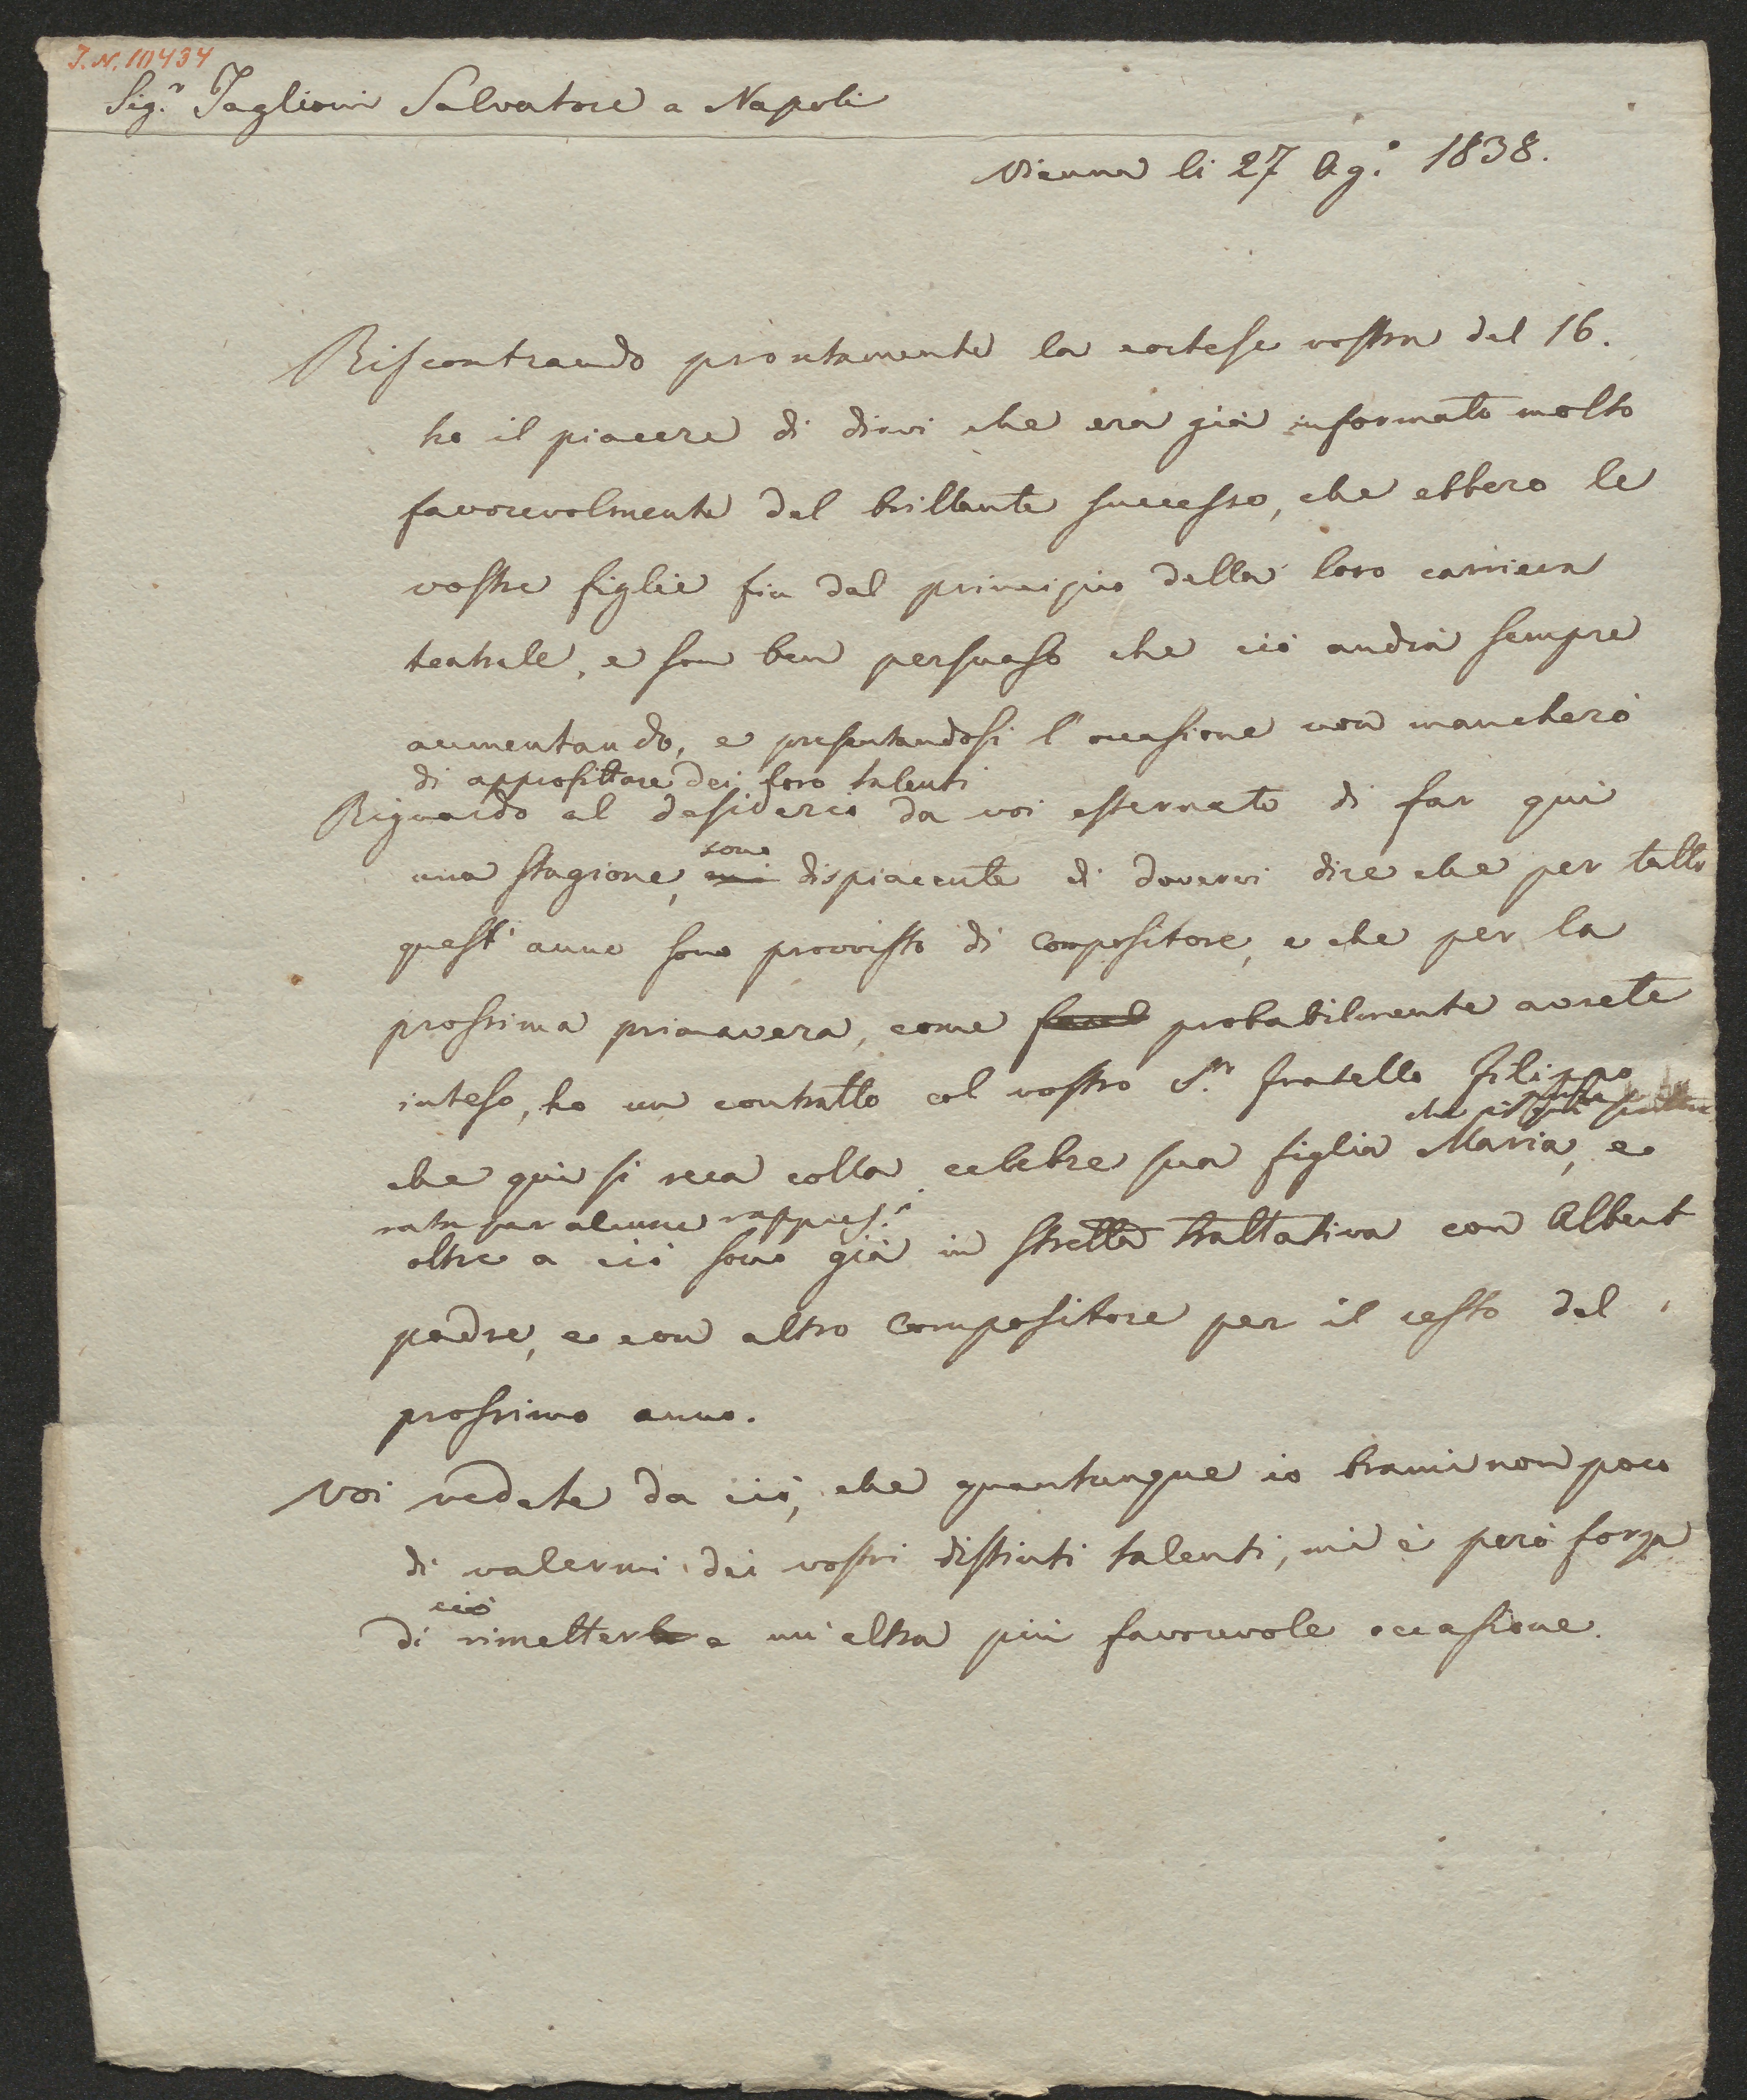 I.N. 111434
Sig.r Taglioni Salvatore a Napoli
Vienna li 27 Ag.o 1838.
Riscontrando prontamente la cortese vostra del 16.
ho il piacere di dirvi che era già informato molto
favorevolmente del brillante successo, che ebbero le
vostre figlie fin dal principio della loro carriera
teatrale, e son ben persuaso che ciò andrà sempre
aumentando, e presentandosi l'occasione non mancherò
di approfittare dei loro talenti
Riguardo al desiderio da voi esternato di far qui
sono
una stagione, dispiacente di dovervi dire che per tutto
quest' anno sono provvisto di compositore, e che per la
prossima primavera, come probabilmente avrete
inteso, ho un contratto col vostro S.r fratello Filippo
che
che qui si reca colla celebre sua figlia Maria, e
per alcune rappres.i
oltre a ciò sono già in stretta trattativa con Albert
padre, e con altro compositore per il resto del
prossimo anno.
Voi vedete da ciò, che quantunque io brami non poco
di valermi dei vostri distinti talenti, mi è però forza
ciò
di rimetter a un'altra più favorevole occasione.